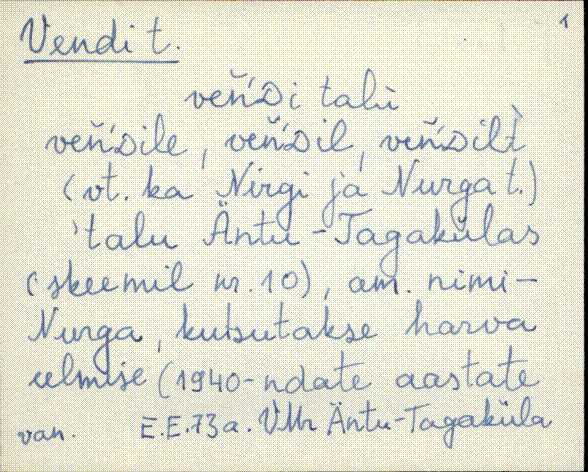 1
Vendi t.
veň́Di talù
veň́Dile, veň́Dil, veň́Dilt̀
(vt. ka Nirgi ja Nurga t.)
'talu Äntu-Tagakülas
(skeemil nr. 10), am. nimi-
Nurga, kutsutakse harva
eelmise (1940-ndate aastate
van. E.E. 73 a. VMr Äntu-Tagaküla